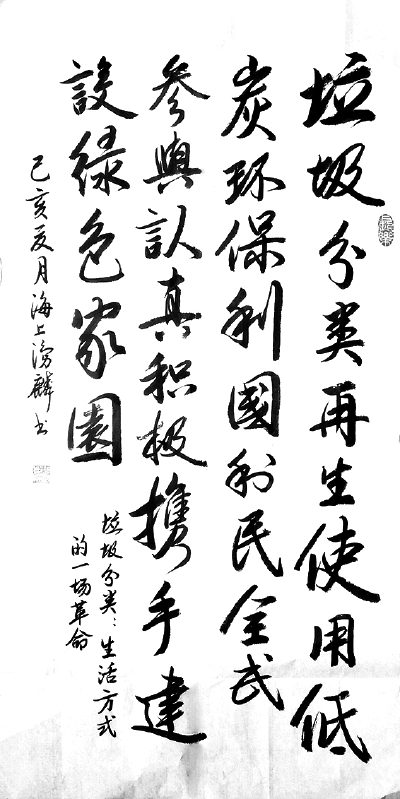 垃圾分类再生使用低
炭环保利國利民全民
参與认真积极携手建
設绿色家園
垃圾分类：生活方式
的一场革命
己亥夏月海上滂麟书